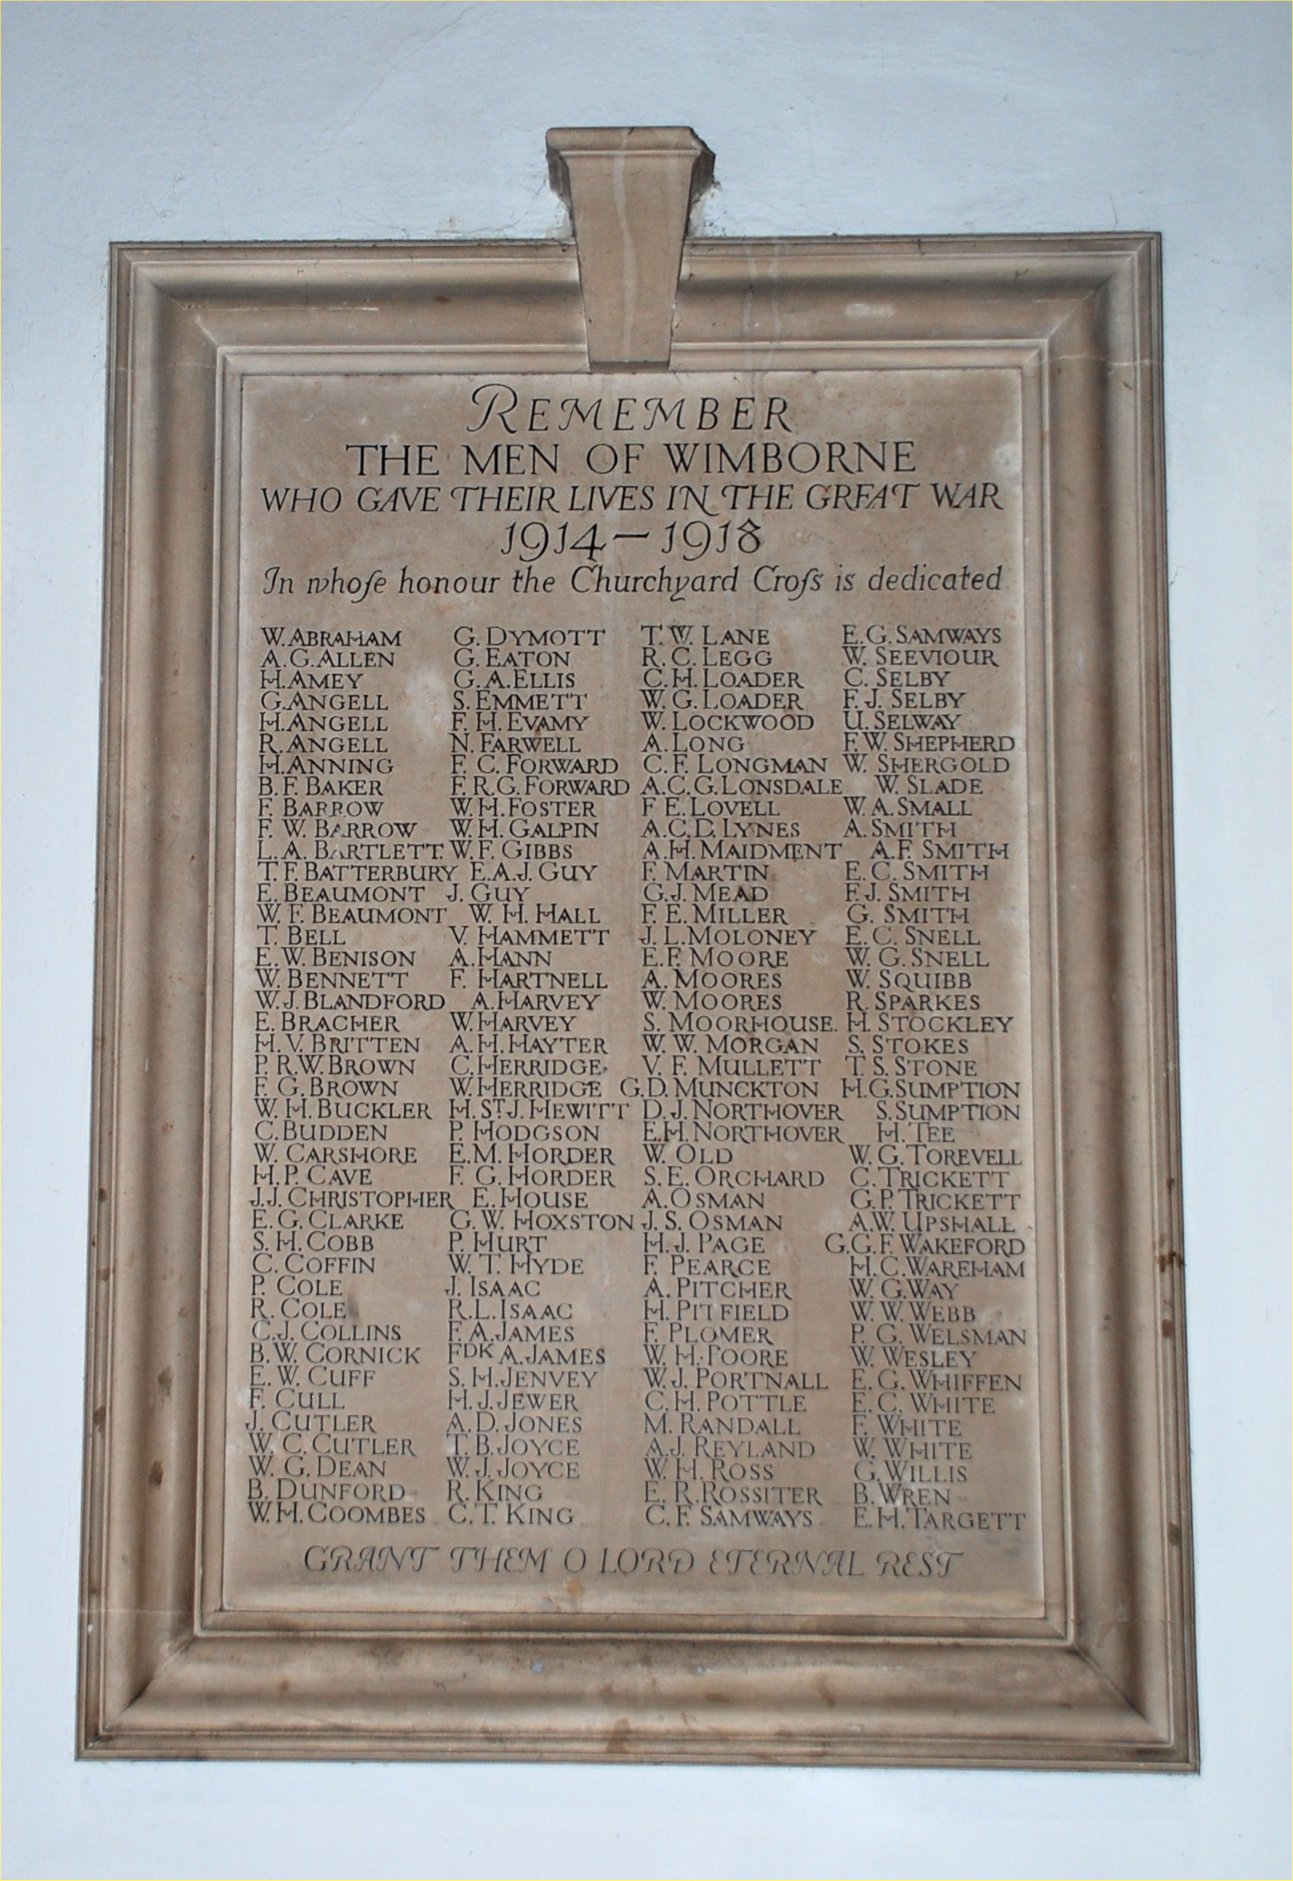 REMEMBER
THE MEN OF WIMBORNE
WHO GAVE THEIR LIVES IN THE GREAT WAR
1914–1918
In whoſe honour the Churchyard Croſs is dedicated
W. ABRAHAM G. DYMOTT T. W. LANE E. G. SAMWAYS
A. G. ALLEN G. EATON R. C. LEGG W. SEEVIOUR
H. AMEY G. A. ELLIS C. H. LOADER C. SELBY
G. ANGELL S. EMMETT W. G. LOADER F. J. SELBY
H. ANGELL F. H. EVAMY W. LOCKWOOD U. SELWAY
R. ANGELL N. FARWELL A. LONG F. W. SHEPHERD
H. ANNING F. C. FORWARD C. F. LONGMAN W. SHERGOLD
B. F. BAKER F. R. G. FORWARD A. C. G. LONSDALE W. SLADE
F. BARROW W. H. FOSTER F E. LOVELL W. A. SMALL
F. W. BARROW W. H. GALPIN A. C. D. LYNES A. SMITH
L. A. BARTLETT. W. F. GIBBS A. H. MAIDMENT A. F. SMITH
T. F. BATTERBURY E. A. J. GUY F. MARTIN E. C. SMITH
E. BEAUMONT J. GUY G. J. MEAD F. J. SMITH
W. F. BEAUMONT W. H. HALL F. E. MILLER G. SMITH
T. BELL V. HAMMETT J. L. MOLONEY E. C. SNELL
E. W. BENISON A. HANN E. F. MOORE W. G. SNELL
W. BENNETT F. HARTNELL A. MOORES W. SQUIBB
W. J. BLANDFORD A. HARVEY W. MOORES R. SPARKES
E. BRACHER W. HARVEY S. MOORHOUSE. H. STOCKLEY
H. V. BRITTEN A. H. HAYTER W. W. MORGAN S. STOKES
P. R. W. BROWN C. HERRIDGE V. F. MULLETT T. S. STONE
F. G. BROWN W. HERRIDGE G. D. MUNCKTON H. G. SUMPTION
W. H. BUCKLER H. ST. J. HEWITT D. J. NORTHOVER S. SUMPTION
C. BUDDEN P. HODGSON E. H. NORTHOVER H. TEE
W. CARSHORE E. M. HORDER W. OLD W. G. TOREVELL
H. P. CAVE F. G. HORDER S. E. ORCHARD C. TRICKETT
J. J. CHRISTOPHER E. HOUSE A. OSMAN G. P. TRICKETT
E. G. CLARKE G. W. HOXSTON J. S. OSMAN A. W. UPSHALL
S. H. COBB P. HURT H. J. PAGE G. G. F. WAKEFORD
C. COFFIN W. T. HYDE F. PEARCE H. C. WAREHAM
P. COLE J. ISAAC A. PITCHER W. G. WAY
R. COLE R. L. ISAAC H. PITFIELD W. W. WEBB
C. J. COLLINS F. A. JAMES F. PLOMER P. G. WELSMAN
B. W. CORNICK FDK A. JAMES W. H. POORE W. WESLEY
E. W. CUFF S. H. JENVEY W. J. PORTNALL E. G. WHIFFEN
F. CULL H. J. JEWER C. H. POTTLE E. C. WHITE
J. CUTLER A. D. JONES M. RANDALL F. WHITE
W. C. CUTLER T. B. JOYCE A. J. REYLAND W. WHITE
W. G. DEAN W. J. JOYCE W. H. ROSS G. WILLIS
B. DUNFORD R. KING E. R. ROSSITER B. WREN
W. H. COOMBES C. T. KING C. F. SAMWAYS E. H. TARGETT
GRANT THEM O LORD ETERNAL REST